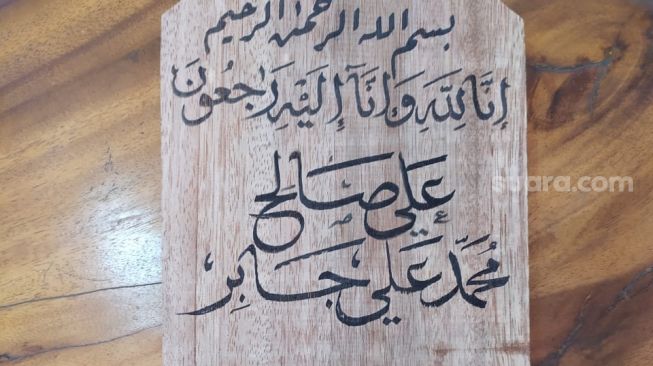 بسم الله الرحمن الرحيم
إِنَّا لِلَّهِ وَإِنَّآ إِلَيْهِ رَاجِعُوْنَ
عَلِي صَالِح
مُحَمَّد عَلِي جَابِر
suara.com